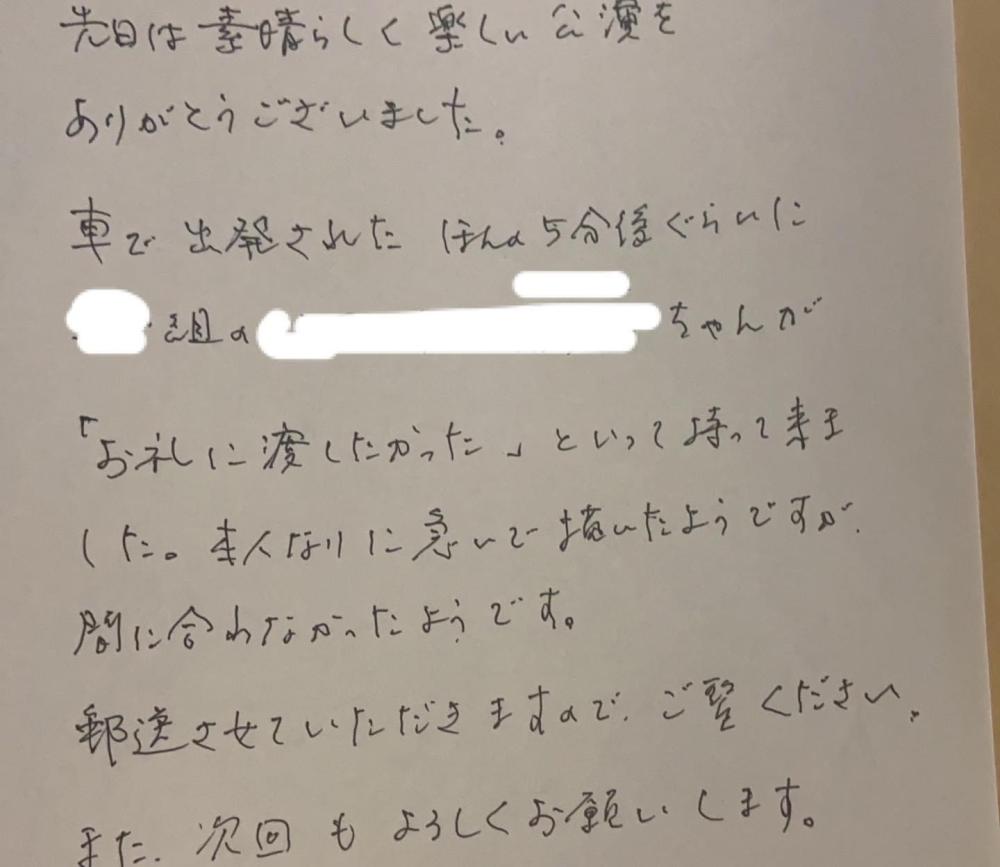 先日は素晴らしく楽しい公演を
ありがとうございました。
車で出発されたほんの5分後ぐらいに
組の ちゃんが
「お礼に渡したかった」といって持って来ま
した。本人なりに急いで描いたようですが、
間に合わなかったようです。
郵送させていただきますので、ご覧ください。
また、次回もよろしくお願いします。